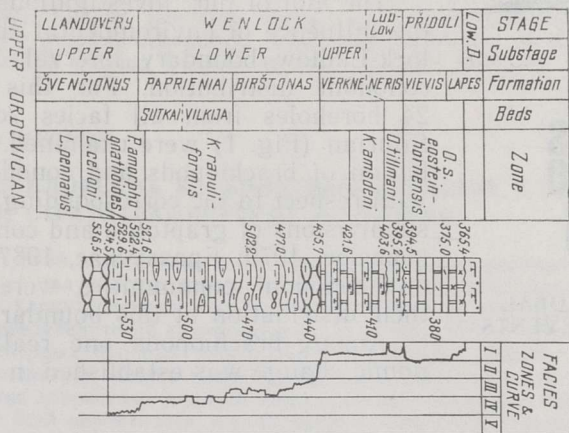 LLANDOVERY WENLOCK LUD-LOW PŘIDOLI LOW. D. STAGE
UPPER LOWER UPPER Substage
ŠVENČIONYS PAPRIENIAI BIRŠTONAS VERKNĖ NERIS VIEVIS LAPĖS Formation
SUTKAI VILKIJA Beds
UPPER ORDOVICIAN
L. pennatus
L. celloni
P. amorpho-
gnathoides
K. ranuli-
formis
K. amsdeni
O. tillmani
O. s.
eostein-
hornensis
Zone
536,5
534,5
529,6
522,4
521,6
502,2
477,0
435,7
421,6
403,6
395,2
394,5
375,0
365,4
530 500 470 440 410 380
I II III IV V
FACIES
ZONES &
CURVE